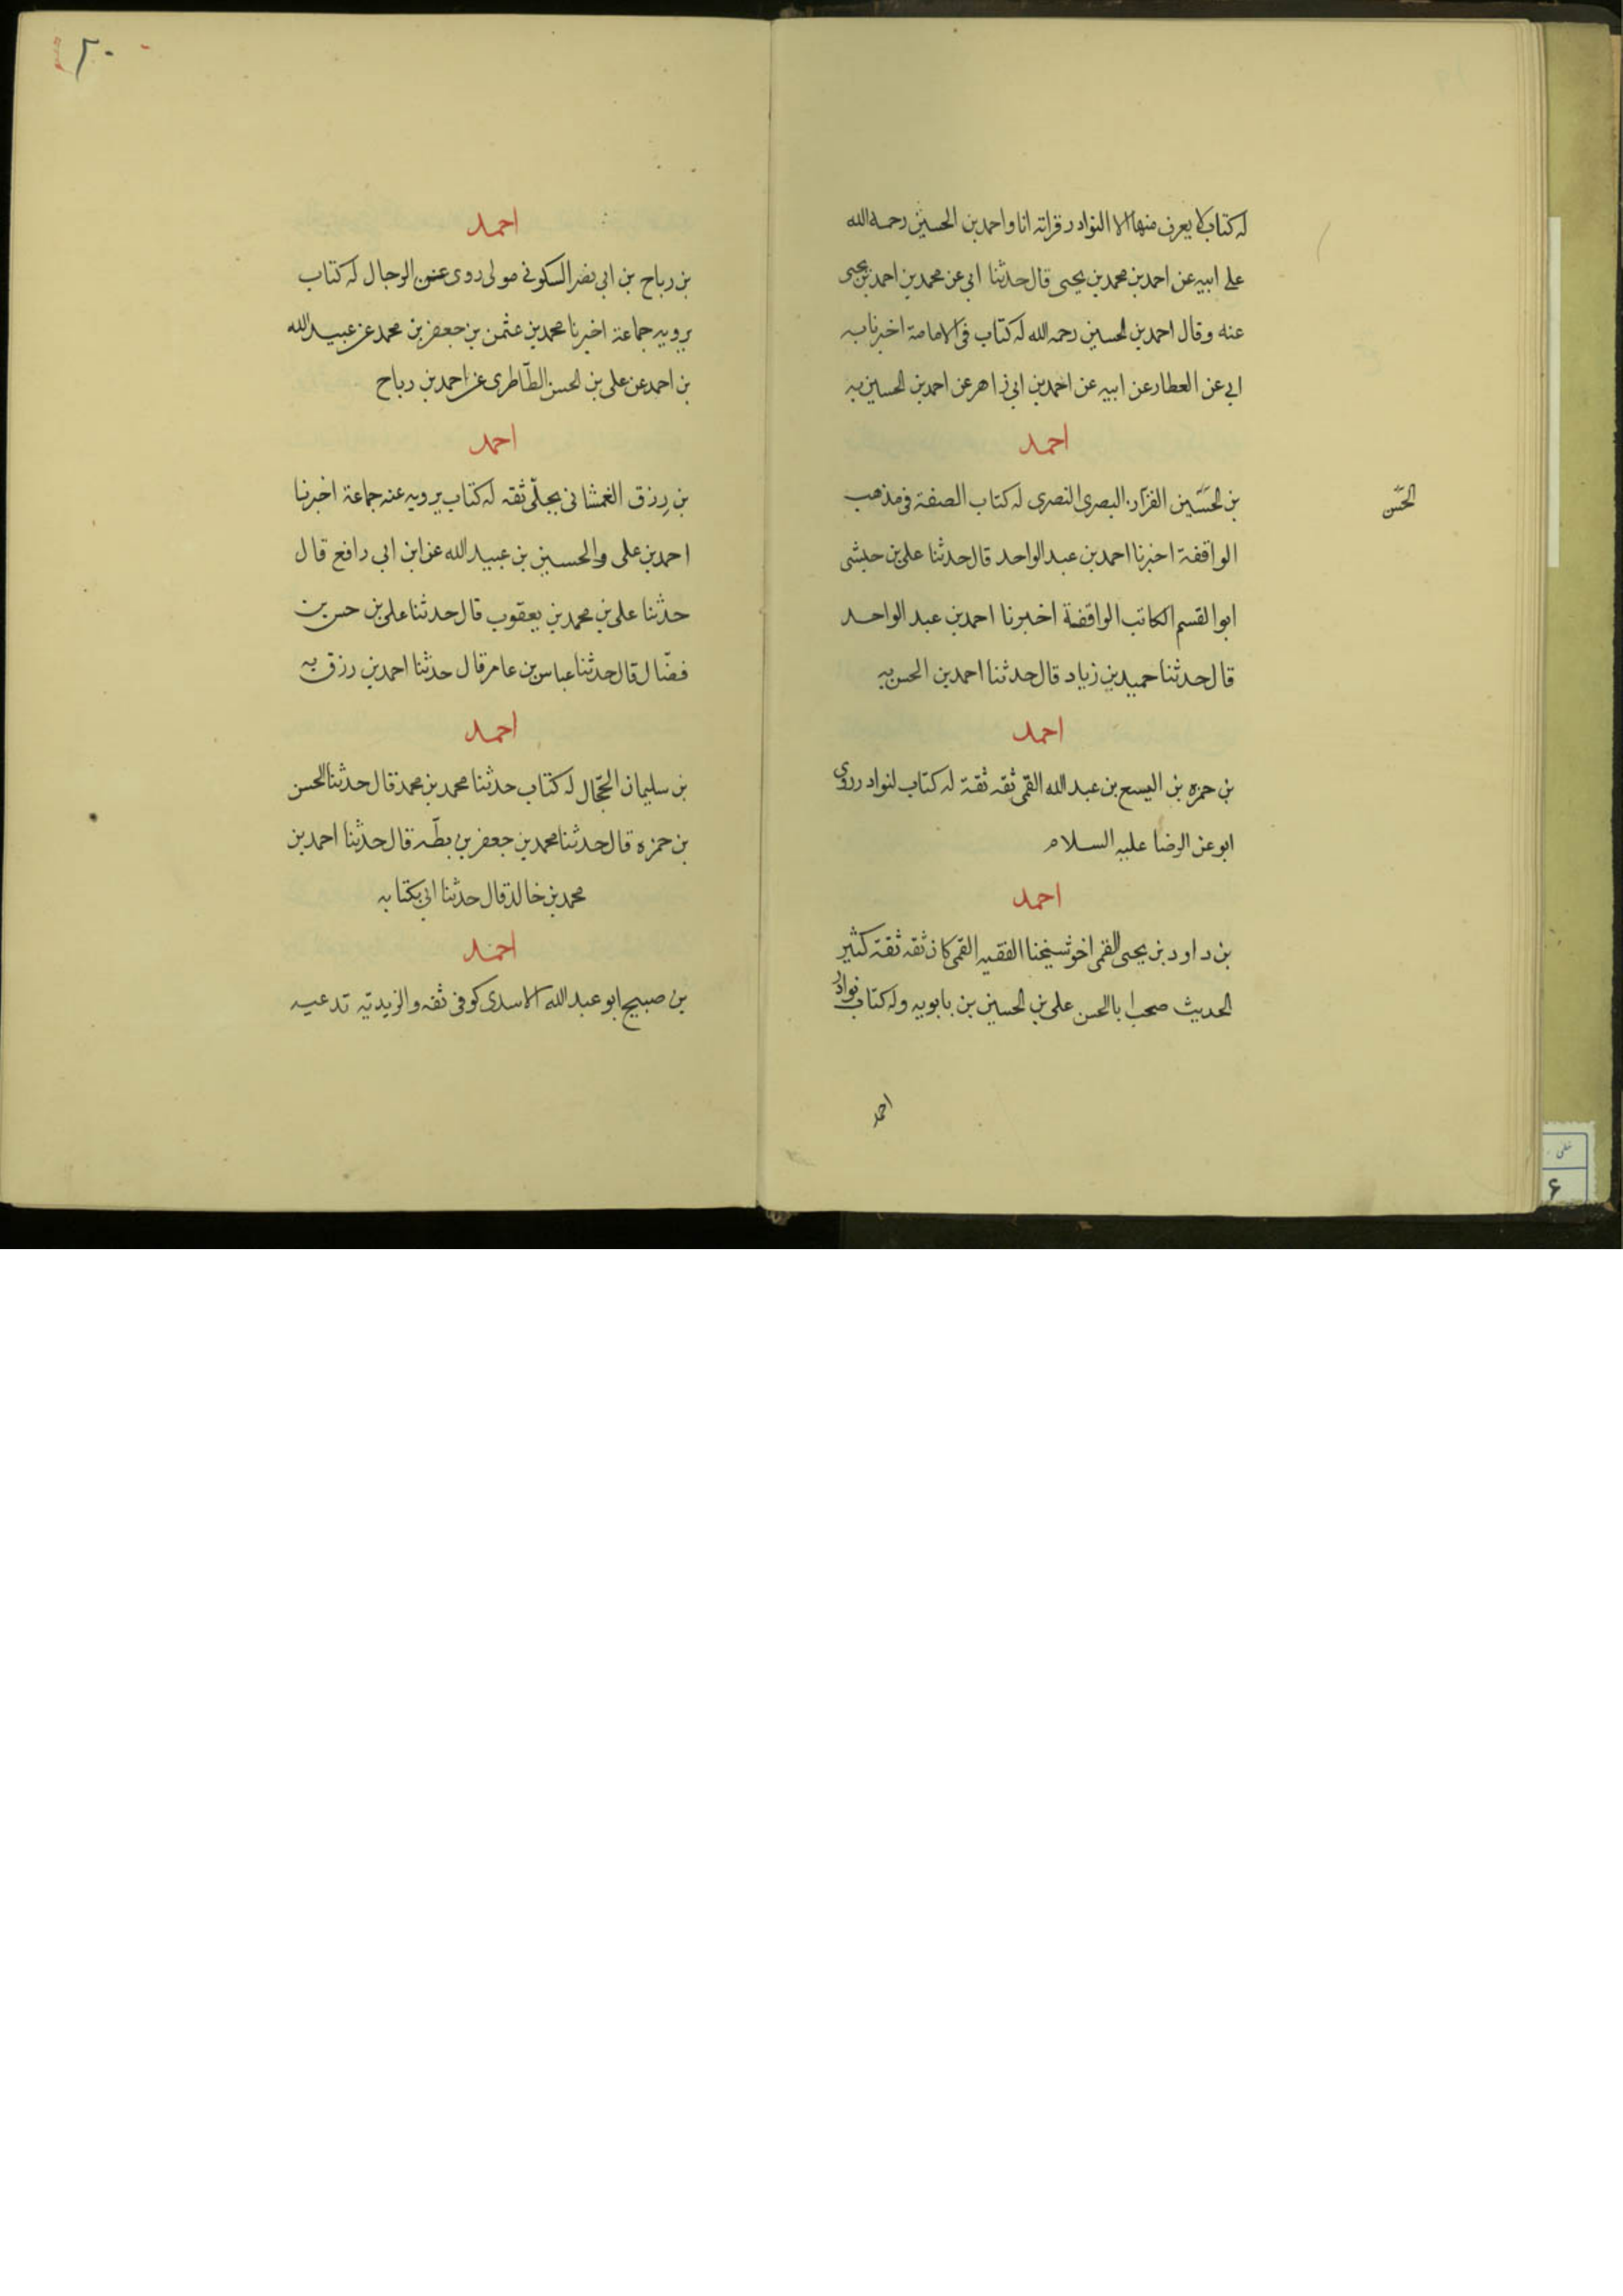 له كتاب لا يعرف منها الا النوادر قراته انا واحمد بن الحسين رحمه الله
على ابيه عن احمد بن محمد بن يحيى قال حدثنا ابي عن محمد بن احمد بن يحيى
عنه وقال احمد بن الحسين رحمه الله له كتاب في الامامة اخبرنا به
ابي عن العطار عن ابيه عن احمد بن ابي زاهر عن احمد بن الحسين به
احمد
بن الحسين القزاز البصري النصرى له كتاب الصفة في مذهب
الحسن
الواقفة اخبرنا احمد بن عبد الواحد قال حدثنا على بن حبشى
ابوالقسم الكاتب الواقفة اخبرنا احمد بن عبد الواحد
قال حدثنا حميد بن زياد قال حدثنا احمد بن الحسن به
احمد
بن حمزه بن اليسع بن عبد الله القمى ثقه ثقة له كتاب لنوادر روى
ابو عن الرضا عليه السلام
احمد
بن داود بن يحيى القمى اخو شيخنا الفقيه القمى كان ثقه ثقة كثير
الحديث صحب ابا الحسن على بن الحسين بن بابويه وله كتاب نوادر
احمد
٢٠
احمد
بن رباح بن ابي نصر السكوني مولى روى عن الرجال له كتاب
يرويه جماعة اخبرنا محمد بن عثمن بن جعفر بن محمد عن عبيد الله
بن احمد عن على بن الحسن الطّاطرى عن احمد بن رباح
احمد
بن رزق الغمشانى بجلّى ثقه له كتاب يرويه عنه جماعة اخبرنا
احمد بن على والحسين بن عبيد الله عن ابن ابي رافع قال
حدثنا على بن محمد بن يعقوب قال حدثنا على بن حسن بن
فضّال قال حدثنا عباس بن عامر قال حدثنا احمد بن رزق به
احمد
بن سليمان الحجّال له كتاب حدثنا محمد بن محمد قال حدثنا الحسن
بن حمزه قال حدثنا محمد بن جعفر بن بطّه قال حدثنا احمد بن
محمد بن خالد قال حدثنا ابى بكتابه
احمد
بن صبيح ابو عبد الله الاسدى كوفى ثقه والزيديّه تدعيه